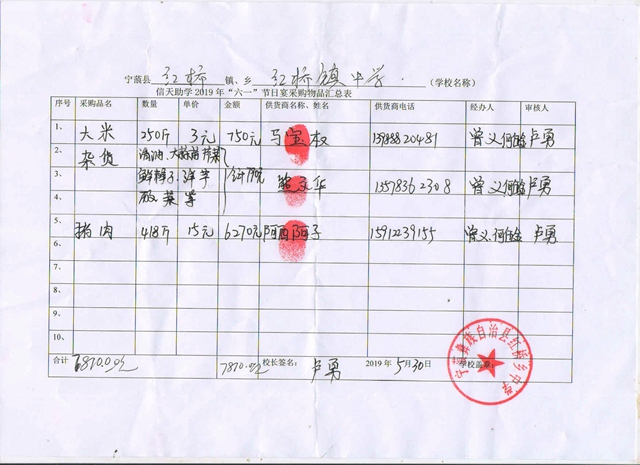 宁蒗县 红桥 镇、乡 红桥镇中学 (学校名称)
信天助学2019年“六一”节日宴采购物品汇总表
序号 采购品名 数量 单价 金额 供货商名称、姓名 供货商电话 经办人 审核人
1、 大米 250斤 3元 750元 马宝权 13988820481 曾义 卢勇
2、 杂货
3、 洋芋 13578362308 曾义 卢勇
4、
5、 猪肉 418斤 15元 6270元 15912239155 曾义 卢勇
6、
7、
8、
9、
10、
合计 7870.0元 7870.0元 校长签名: 卢勇 2019年5月30日 学校盖章:
宁蒗彝族自治县红桥乡中学